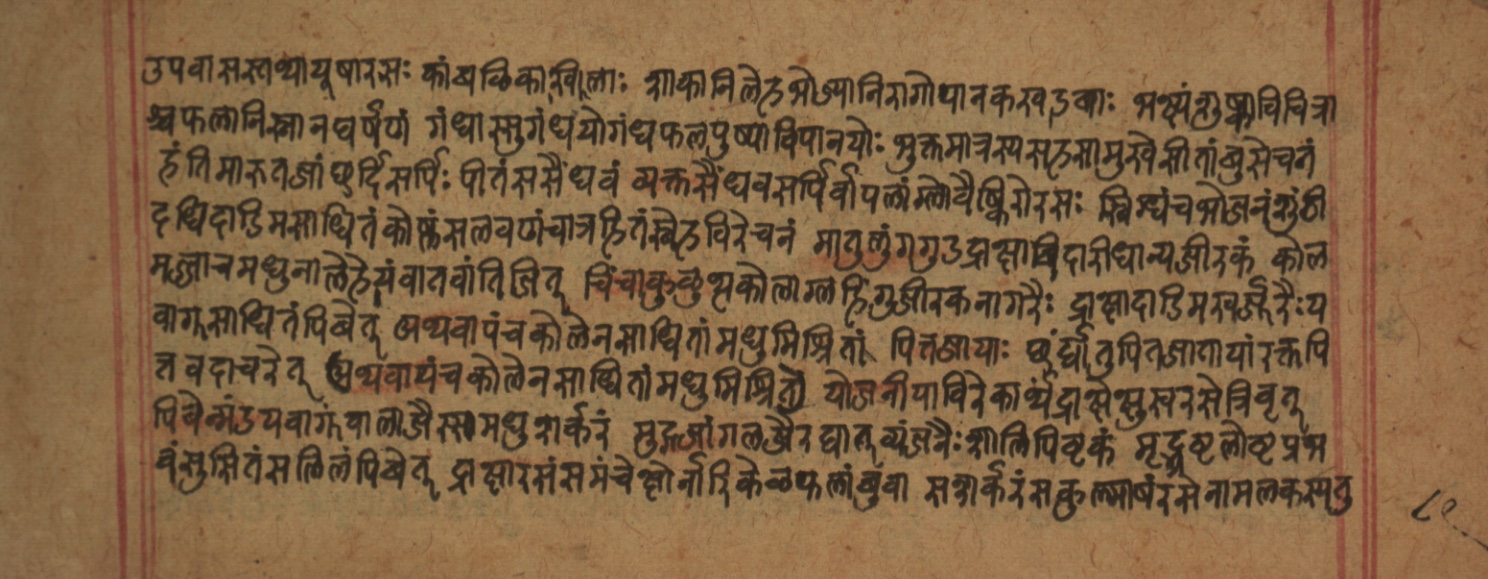 उपवासस्तथायूषारसः कांबळिकाखिलाः शाकानिलेहभोज्यानिरागोपानकखडवाः भक्ष्यंशुष्काविचित्रा
श्चफलानिस्नानघर्षणं गंधास्सुगंधयोगंधफलपुष्पाविपानयोः भुक्तमात्रस्यसहसामुखेसीतांबुसेचनं
हंतिमारुतजांछर्दिसर्पिः पीतंससैंधवं व्यक्तसैंधवसर्पिर्वापलाम्लोवैष्किरोरसः स्निग्धंचभोजनंशुंठी
दधिदाडिमसाधितंकोष्णंसलवणंचात्रहितंस्नेहविरेचनं मातुलुंगगुडद्राक्षाविदारीधान्यजीरकं कोल
मज्जाचमधुनालेहेयंवातवांतिजित् चिंचाकुळुत्थकोलाम्लहिंगुजीरकनागरैः द्राक्षादाडिमखर्जूरैःय
वागूसाधितंपिबेत् अथवापंचकोलेनसाधितांमधुमिश्रितां पित्तजायाः छर्द्यांतुपित्तजातायांरक्तपि
त्तवदाचरेत् अथवापंचकोलेनसाधितांमधुमिश्रितां योजनीयाविरेकार्थंद्राक्षेक्षुस्वरसेत्रिवृत्
पिबेन्मंडयवागूंवालाजैस्समधुशर्करं मुद्गजांगलजैरद्यात्व्यंजनैःशालिपिष्टकं मृद्भृष्टलोष्टप्रभ
वंसुसितंसलिलंपिबेत् द्राक्षारसंसमंचेक्षोर्नारिकेळफलांबुवा सशर्करंसकुल्माषंरसेनामलकस्यतु
८९